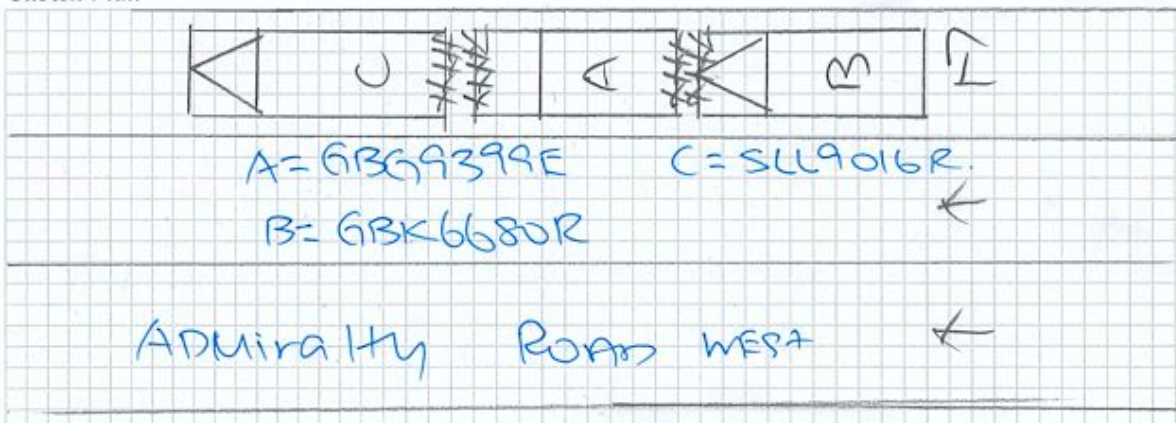 C A B
A = GBG9399E C = SLL9016R.
B = GBK6680R
ADMiralty ROAD WEST